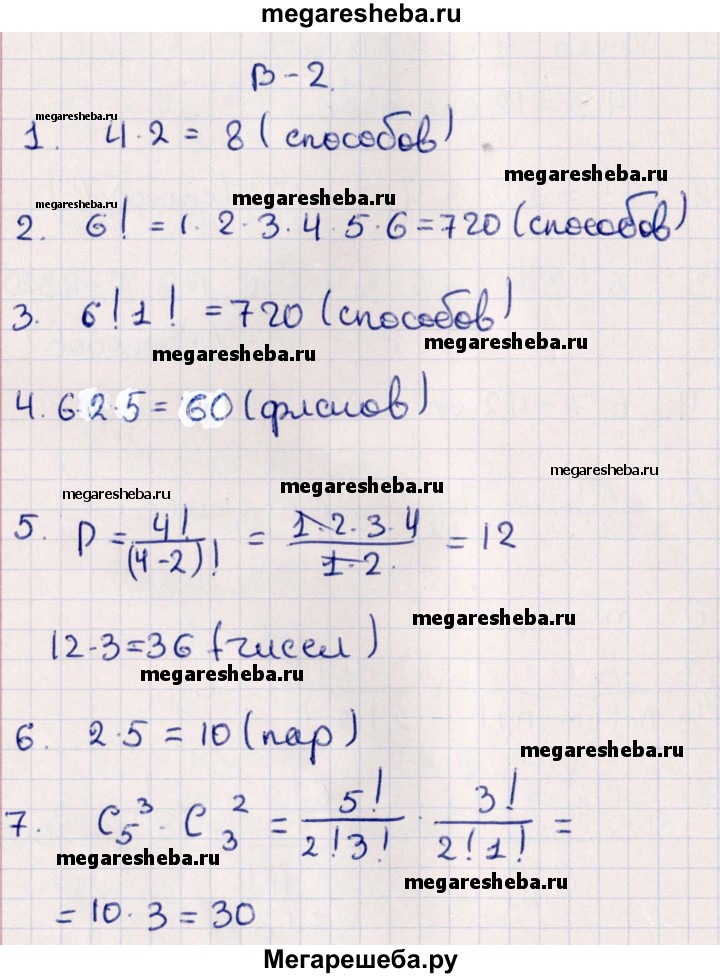 megaresheba.ru
В-2.
megaresheba.ru
1. 4·2 = 8 (способов)
megaresheba.ru
megaresheba.ru
megaresheba.ru
2. 6! = 1·2·3·4·5·6=720 (способов)
3. 6!1! =720 (способов)
megaresheba.ru
megaresheba.ru
4. 6·2·5 = 60 (флагов)
megaresheba.ru
megaresheba.ru
megaresheba.ru
5. P = 4!/(4-2)! = 1·2·3·4/1·2. = 12
megaresheba.ru
12·3=36 (чисел)
megaresheba.ru
6. 2·5 = 10 (пар)
megaresheba.ru
7. C₅³ · C₃² = 5!/2!3! · 3!/2!1! =
megaresheba.ru
megaresheba.ru
= 10·3 = 30
Мегарешеба.ру